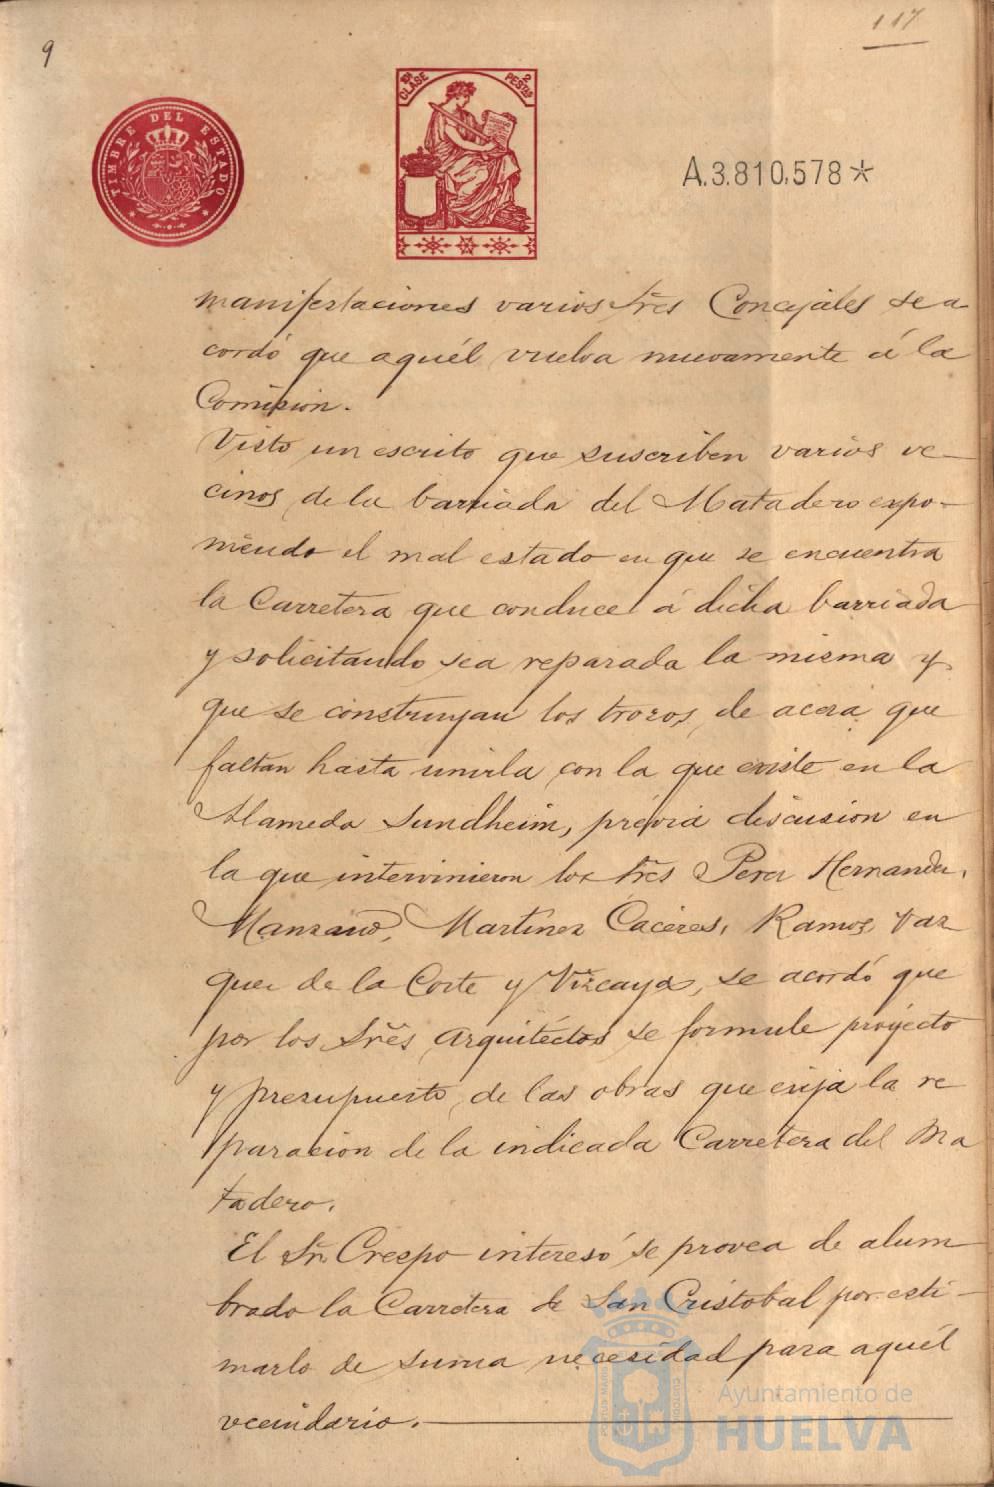 9
117
TIMBRE DEL ESTADO
10ª CLASE 2 PESTAS
A.3.810,578*
manifestaciones varios Sr̃es Concejales se a
cordó que aquél vuelva nuevamente á la
Comision.
Visto un escrito que suscriben varios ve-
cinos de la barriada del Matadero expo-
niendo el mal estado en que se encuentra
la Carretera que conduce á dicha barriada
y solicitando sea reparada la misma y
que se construyan los trozos de acera que
faltan hasta unirla con la que existe en la
Alameda Sundheim, prévia discusion en
la que intervinieron los Sr̃es Perez Hernandez,
Manzano, Martínez Caceres, Ramos, Vaz
quez de la Corte y Vizcaya, se acordó que
por los Sr̃es Arquitéctos se formule proyécto
y presupuesto de las obras que exija la re
paracion de la indicada Carretera del Ma
tadero.
El Sr̃. Crespo interesó se provea de alum
brado la Carretera de San Cristobal por esti-
marlo de suma necesidad para aquél
vecindario.
Ayuntamiento de
HUELVA